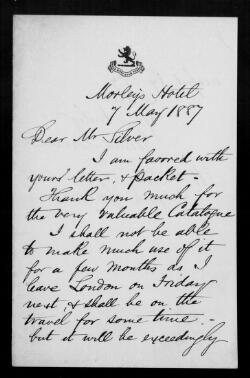 Morley's Hotel
7 May 1887
Dear Mr Silver
I am favored with
yours letter, & packet -
Thank you much for
the very valuable Catalogue
I shall not be able
to make much use of it
for a few months as I
leave London on Friday
next, & shall be on the
travel for some time -
but it will be exceedingly